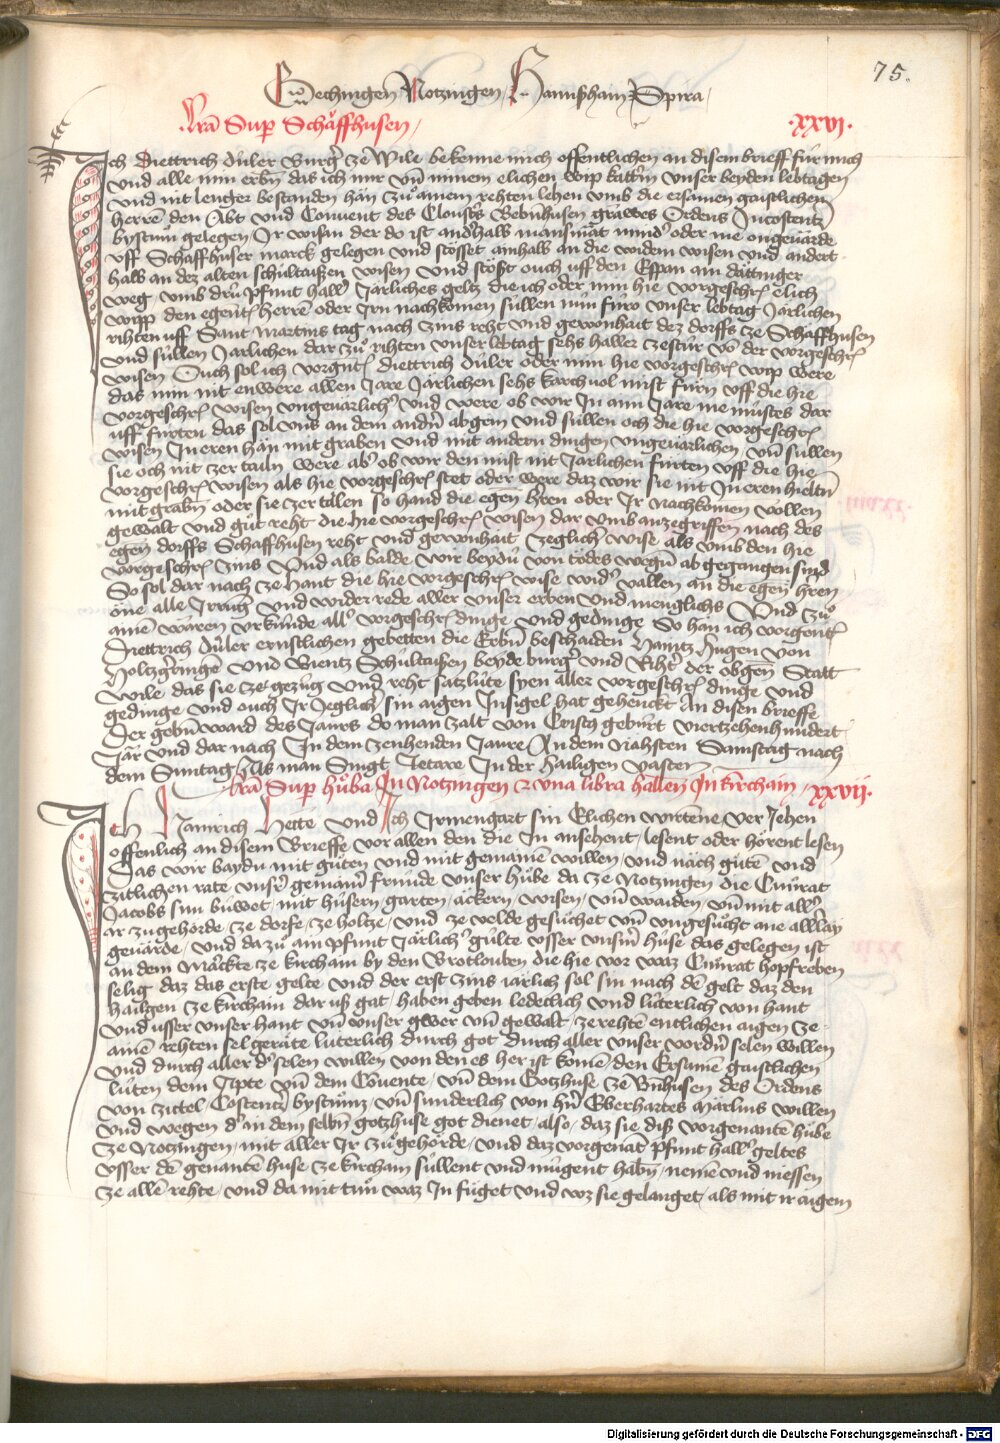 75.
Mechingen Notzingen Hannßhain Spira
Lrã Sup Schäffhusen · xxvi ·
Ich Diettrich Düler Burger ze Wile bekenne mich offentlichen an disem brieff für mich
vnd alle min erbñ das ich mir vnd minem elichen wip kattrin vnser beyden lebtagen
vnd nit lenger bestanden hän zů ainem rehten lehen vmb die ersamen gaistlichen
herrẽ den Abt vnd Conuent des Closters Bebenhusen gräwes Ordens In costentz
bystum gelegen Ir wisun der do ist andhalb mansmät minder oder me ongeuärde
vff Schaffhuser marck gelegen vnd stösset ainhalb an die widem wisen vnd andert
halb an dez alten schultaißen wisen vnd stößt ouch vff den Espan am dättinger
weg vmb drü pfunt haller Järliches geltz die ich oder min hie vorgeschrẽ elich
wipp den egeñ herrẽ oder Irn nachkomen süllen nun füro vnser lebtag Jarlichen
rihten vff Sant martins tag nach zins reht vnd gewonhait dez dorffs ze Schaffhusen
vnd süllen Jarlichen dar zů rihten vnser lebtag sehs haller ze stür von der vorgeschrẽ
wisen Ouch sol ich vorgnt Diettrich Düler oder min hie vorgeschrẽ wip were
das min nit enwere allen Jare Järlichen sehs karchuol mist fürn vff die hie
vorgeschrẽ wisen vngeuärlich vnd were ob wir In aim Jare me müstes dar
uff fürten das sol vns an dem andñ abgen vnd süllen och die hie vorgeschrẽ
wisen In eren hän mit graben vnd mit andern dingen vngeuärlichen vñ süllen
sie och nit zertailn were aber ob wir den mist nit Jarlichen fürten vff die hie
vorgeschrẽ wisen als hie vorgeschrẽ stet oder were daz wir sie nit In eren hieltñ
mit grabñ oder sie zertailen so hand die egeñ hren oder Ir nachkomen vollen
gewalt vnd güt reht die hie vorgeschrẽ wisen dar vmb anzegriffen nach des
egeñ dorffs Schaffhusen reht vnd gewonhait zeglich wise als vmb den hie
vorgeschrẽ zins Vnd als balde wir beydü von todes wegñ abgegangen sind
So sol dar nach ze hant die hie vorgeschrẽ wise wider vallen an die egeñ hren
öne alle Irrung vnd widerrede aller vnser erben vnd menglichs Vnd zů
aim wären vrkünde aller vorgeschrẽ dinge vnd gedinge So han ich vorgent
Diettrich Düler ernstlichen gebetten die Erbñ beschaiden Haintz Hugen von
Holtzgeringẽ vnd Bientz Schultaißen beyde burger vnd Rihter der obgeñ Statt
wile das sie ze gezüg vnd reht satzlüte syen aller vorgeschrẽ dinge vnd
gedinge vnd ouch Ir Jeglicher sin aigen Insigel hat gehenckt An disen brieffe
Der gebñ ward des Jaurs do man zalt von Cristz gebürt viertzehenhundert
Jär vnd dar nach In dem zenhenden Jaure An dem Nähsten Samstag nach
dem Suntag Als man Singt Letare In der hailigen vasten
Lrã Sup hůba In Notzingen & vna libra hallen In kirchain · xxvij ·
Ich Hainrich Hette vnd Ich Irmengart sin Elichen wirtene Ver Iehen
offenlich an disem Brieffe vor allen den die In ansehent lesent oder hörent lesen
Das wir baydu mit güten vnd mit gemainẽ willen vnd näch gütẽ vnd
zitlichen rate vnser gemainer friunde vnser hůbe da ze Notzingen die Cünrat
Jacobs sun büwet mit hüsern garten äckern wisen vñ waiden vñ mit aller
ir zugehörde ze dorfe ze holtze vnd ze velde gesüchet vñ vngesüht ane allerlay
geuärde vnd da zü ain pfunt Järlicher gülte vsser vnserm huse das gelegen ist
an dem Märkte ze kirchain by den Brotlouben die hie vor waz Cünrat hopfreben
selig daz das erste gelte vnd der erst zins iärlich sol sin nach dẽ gelt daz den
hailgen ze kirchain dar uß gat haben geben ledeclich vnd lüterlich von hant
vnd usser vnser hant vñ vnser gwer vñ gewalt ze rehtẽ entlichen aigen ze
ainẽ rehten selgeräte luterlich durch got durch aller vnser vordñ selen willen
vnd durch aller der selen willen von den es her ist komẽ den Ersamẽ gaistlichen
lüten dem Apte vñ dem Couente vñ dem Gotzhuse ze Bnhusen des Ordens
von zittel Costentzer bystumz vñ sunderlich von hñ Eberhartes märlins willen
vnd wegen der an dem selbñ gotzhuse got dienet also daz sie diß vorgenantẽ hübe
ze Notzingen mit aller Ir zügehörde vnd daz vorgenãt pfunt haller geltes
vsser dẽ genantẽ huse ze kirchain süllent vnd mügent habñ nemẽ vnd niessen
ze allẽ rehte vnd da mit tün waz In füget vnd wz sie gelanget als mit ir aigem
Digitalisierung gefördert durch die Deutsche Forschungsgemeinschaft - DFG